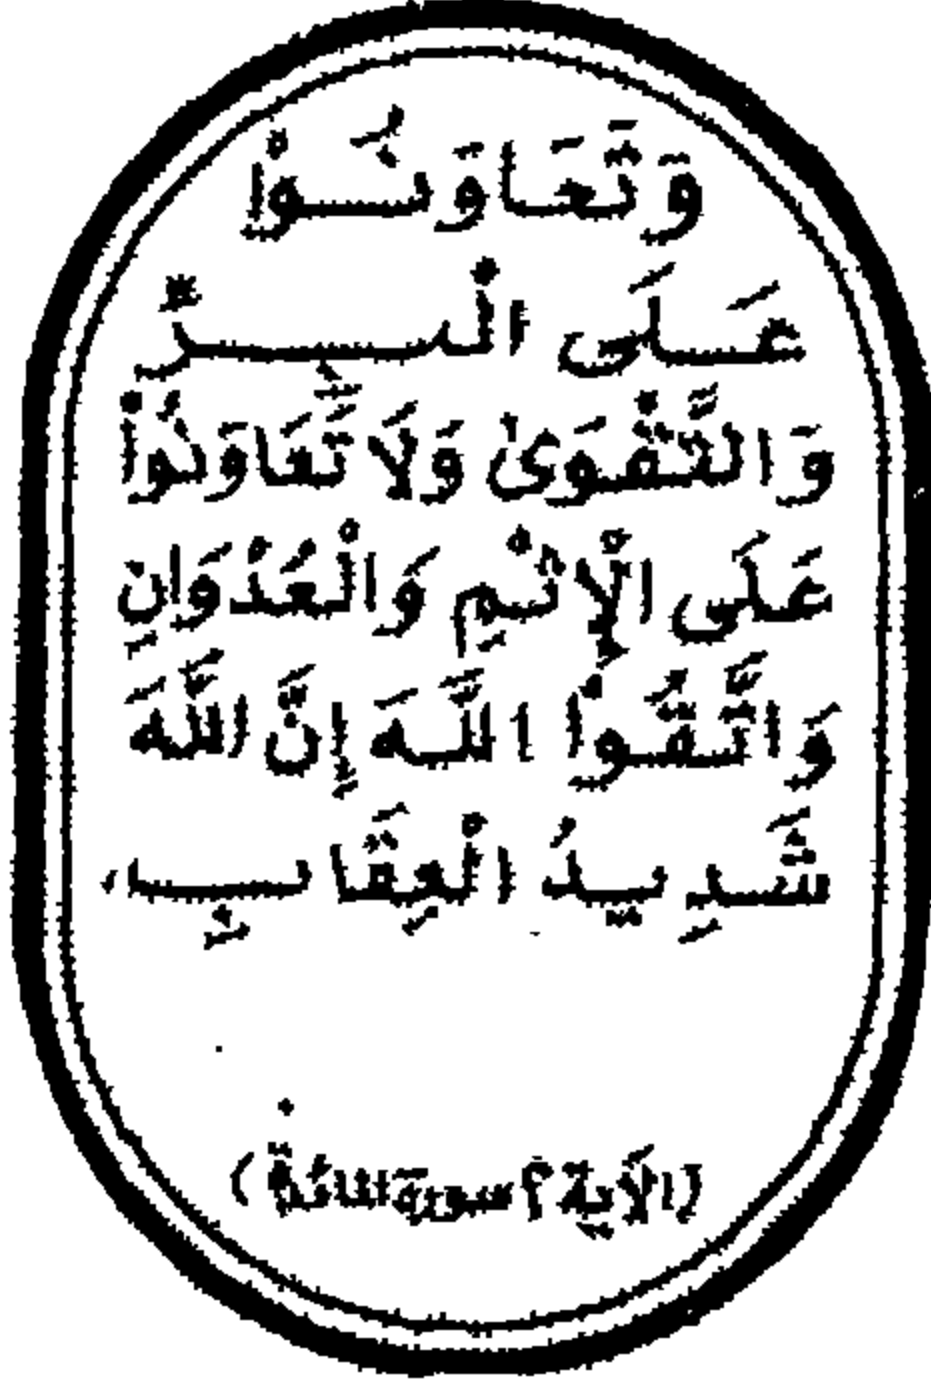 وَتَعَاوَنُوْا
عَلَى الْبِرِّ
وَالتَّقْوَىٰ وَلَا تَعَاوَنُواْ
عَلَى الْإِثْمِ وَالْعُدْوَانِ
وَاتَّقُواْ اللَّهَ إِنَّ اللَّهَ
شَدِيدُ الْعِقَابِ،
(الآية ٢ سورة المائدة)